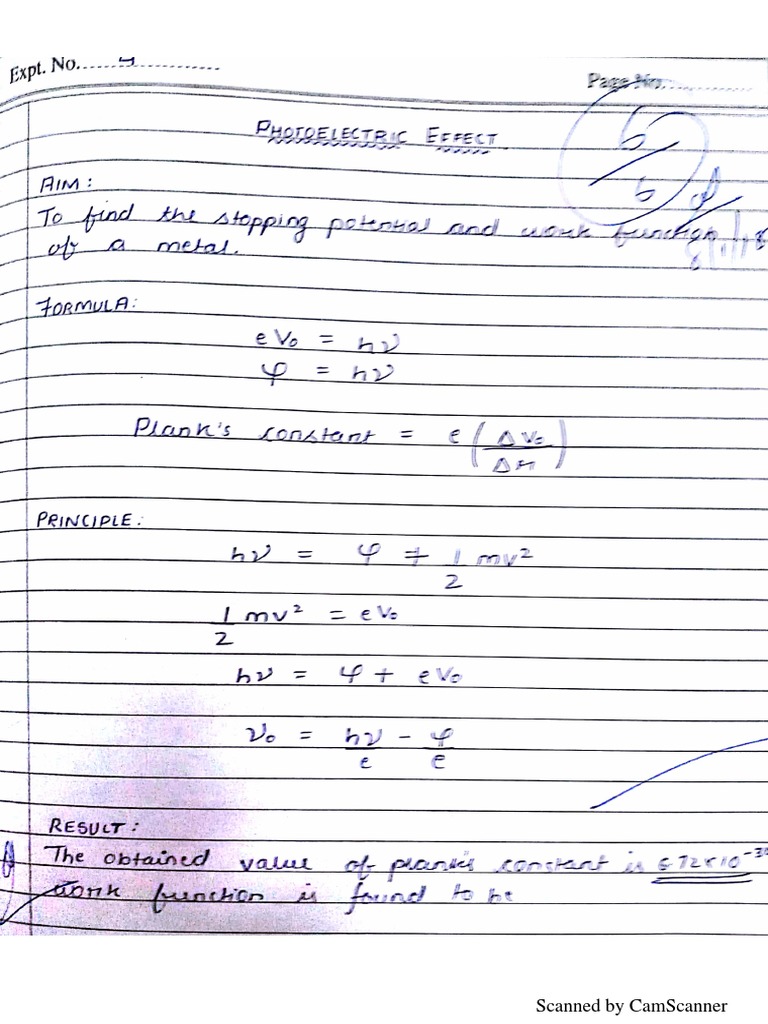 Expt. No. 4
Page No.
PHOTOELECTRIC EFFECT
6
6
AIM:
To find the stopping potential and work function
of a metal.
FORMULA:
eV₀ = hν
φ = hν
Plank's constant = e (ΔV₀/Δn)
PRINCIPLE:
hν = φ + 1/2 mv²
1/2 mv² = eV₀
hν = φ + eV₀
V₀ = hν/e - φ/e
RESULT:
The obtained value of plank's constant is 6.72×10⁻³
work function is found to be
Scanned by CamScanner